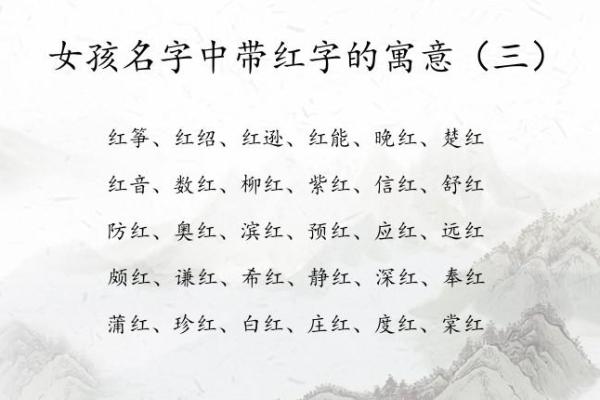 女孩名字中带红字的寓意（三）
红筝、红绍、红逊、红能、晚红、楚红
红音、数红、柳红、紫红、信红、舒红
防红、奥红、滨红、预红、应红、远红
颇红、谦红、希红、静红、深红、奉红
蒲红、珍红、白红、庄红、度红、棠红